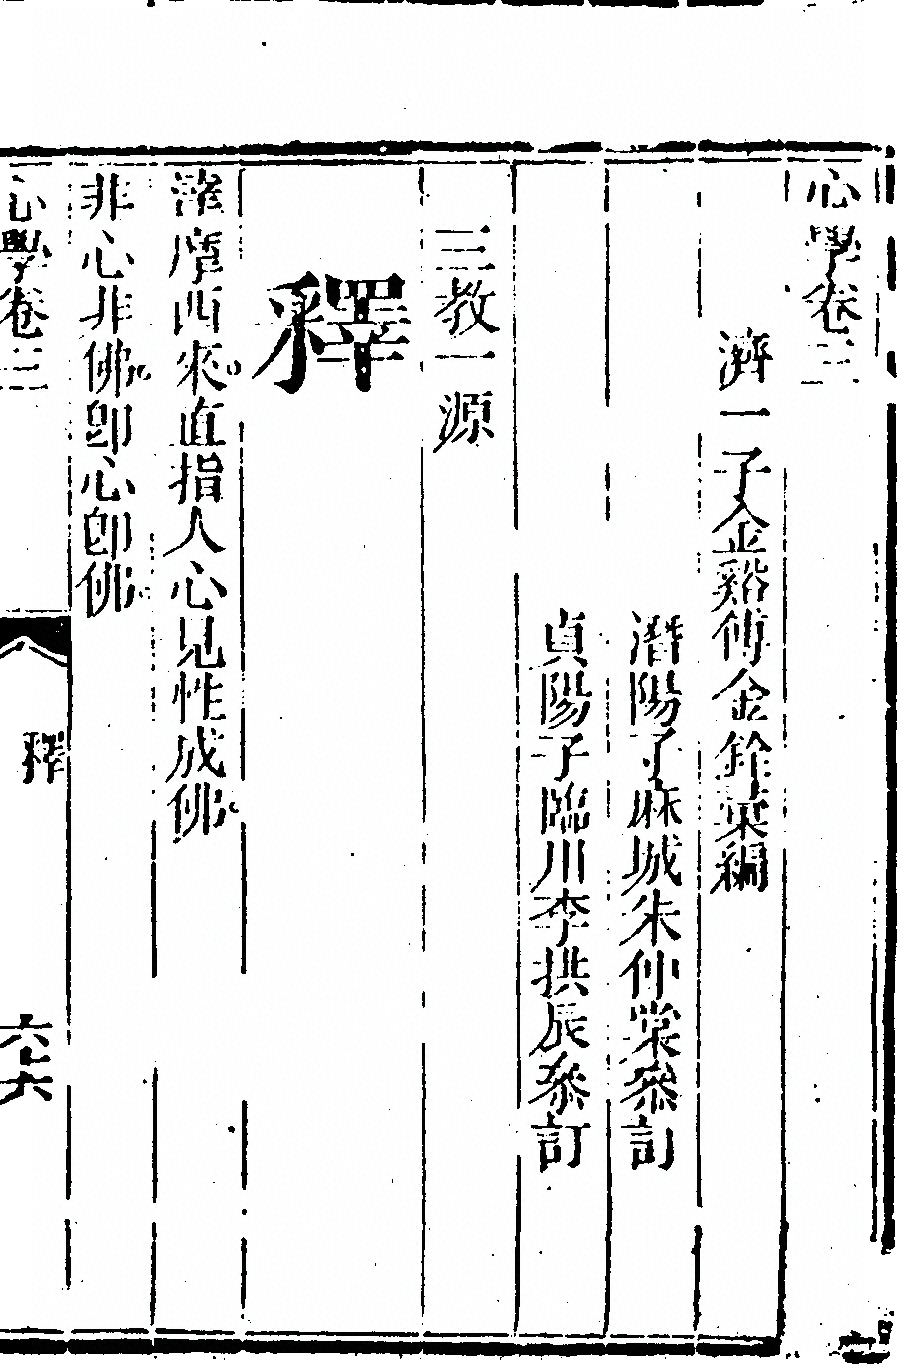 心學卷三
濟一子金谿傅金銓彙編
潛陽子麻城朱仲棠叅訂
貞陽子臨川李拱辰叅訂
三教一源
釋
達摩西來直指人心見性成佛
非心非佛卽心卽佛
心學卷三
釋
六十六